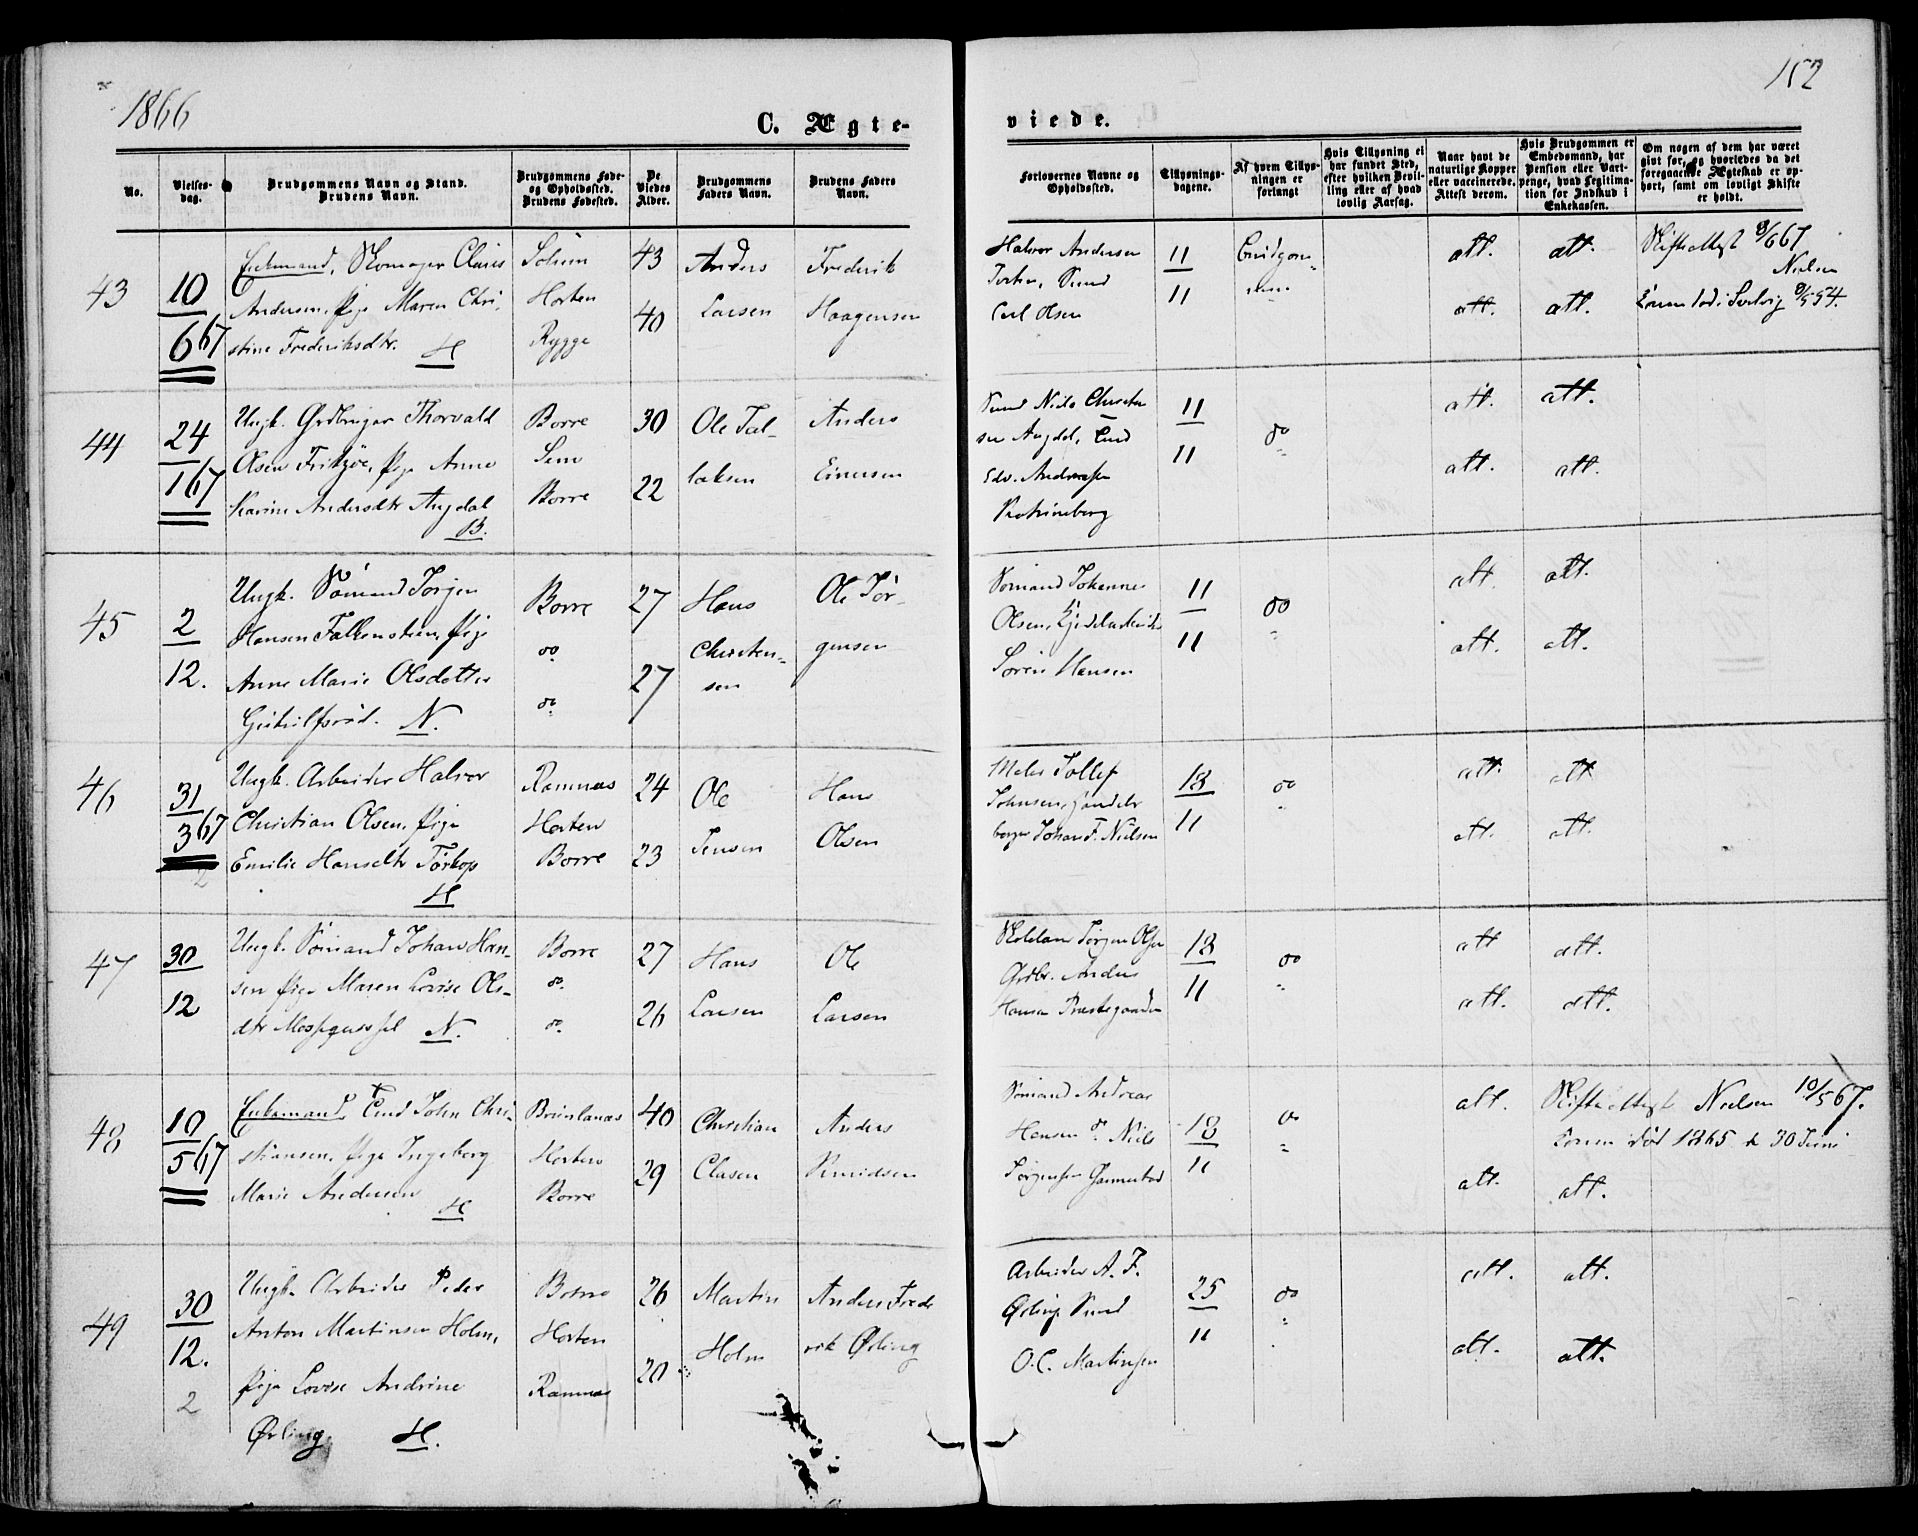 1866
152
C. Ægte-
viede.
No.
Vielses-
dag.
Brudgommens Navn og Stand.
Brudens Navn.
Brudgommens Føde-
og Opholdssted.
Brudens Fødested.
De
Viedes
Alder.
Brudgommens
Faders Navn.
Brudens Faders
Navn.
Forlovernes Navne og
Opholdssted.
Tillysnings-
dagene.
Af hvem Tillys-
ningen er
forlangt
Hvis Tillysning ei
har fundet Sted,
efter hvilken Bevil-
ling eller af hvad
lovlig Aarsag.
Naar havt de
naturlige Kopper
eller vaccinerede.
Attest derom.
Hvis Brudgommen er
Embedsmand, har
Pension eller Vart-
penge, hvad Legitima-
tion for Indskud i
Enkekassen.
Om nogen af dem har været
givt før, og hvorledes da det
foregaaende Ægteskab er op-
hørt, samt om lovligt Skifte
er holdt.
43
10
6 67
Enkemand, Skomager
Andersen, Pige Maren Chri-
stine Frederiksdtr. H
Solum
Horten
Rygge
43
40
Anders
Larsen
Frederik
Haagensen
Halvor Andersen
Carl Olsen
11
11
att. att.
att. att.
Skifteattest 8/6 67
Nielsen
Konen død i Svelvig 8/5 54.
44
24
1 67
Ungk. Grdbruger Thorvald
Olsen Pige Anne
Karine Andersdtr Augdal
B.
Borre
Sem
Borre
30
22
Ole Tal-
laksen
Anders
Einersen
Niels Christen
sen Augdal,
Edv. Andersen
11
11
do
att. att.
att. att.
45
2
12.
Ungk. Sømand Jørgen
Hansen Falkensteen, Pige
Anne Marie Olsdatter
N.
Borre
do
do
27
27
Hans
Christen-
sen
Ole Jør-
gensen
Sømand Johannes
Olsen,
Søren Hansen
11
11
do
att. att.
att. att.
46
31
3 67
2
Ungk. Arbeider Halvor
Christian Olsen, Pige
Emilie Hansdtr Tørkop
H
Ramnæs
Horten
Borre
24
23
Ole
Jensen
Hans
Olsen
Tollef
Johnsen, Handels
borger Johan F. Nielsen
18
11
do
att. att
att. att.
47
30
12
Ungk. Sømand Johan Han-
sen Pige Maren Lovise Ols-
dtr N.
Borre
do.
do.
27
26
Hans
Larsen
Ole
Larsen
Jørgen Olsen
Grdbr. Anders
Hansen Præstegaarden
18
11
do
att att.
att. att.
48
10
5 67
Enkemand, John Chri-
stiansen, Pige Ingeborg
Marie Andersen H
Brunlanæs
Horten
Borre
40
29
Christian
Clasen
Anders
Knudsen
Sømand Andreas
Hansen do. Niels
Jørgensen
18
11
do
att.
att. att.
Skifteattest Nielsen 10/5 67.
Konen død 1865 d 30 Juni
49
30
12.
2
Ungk. Arbeider Peder
Anton Martinsen Holm,
Pige Lovise Andrine
Ørling. H.
Borre
Horten
Ramnæs
26
20
Martin
Holm
Anders Frede
rik Ørling
Arbeider A. F.
Ørling
O. C. Martinsen
25
11
do
att. att.
att. att.